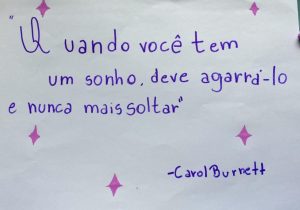 "Quando você tem
um sonho, deve agarrá-lo
e nunca mais soltar"
-Carol Burnett